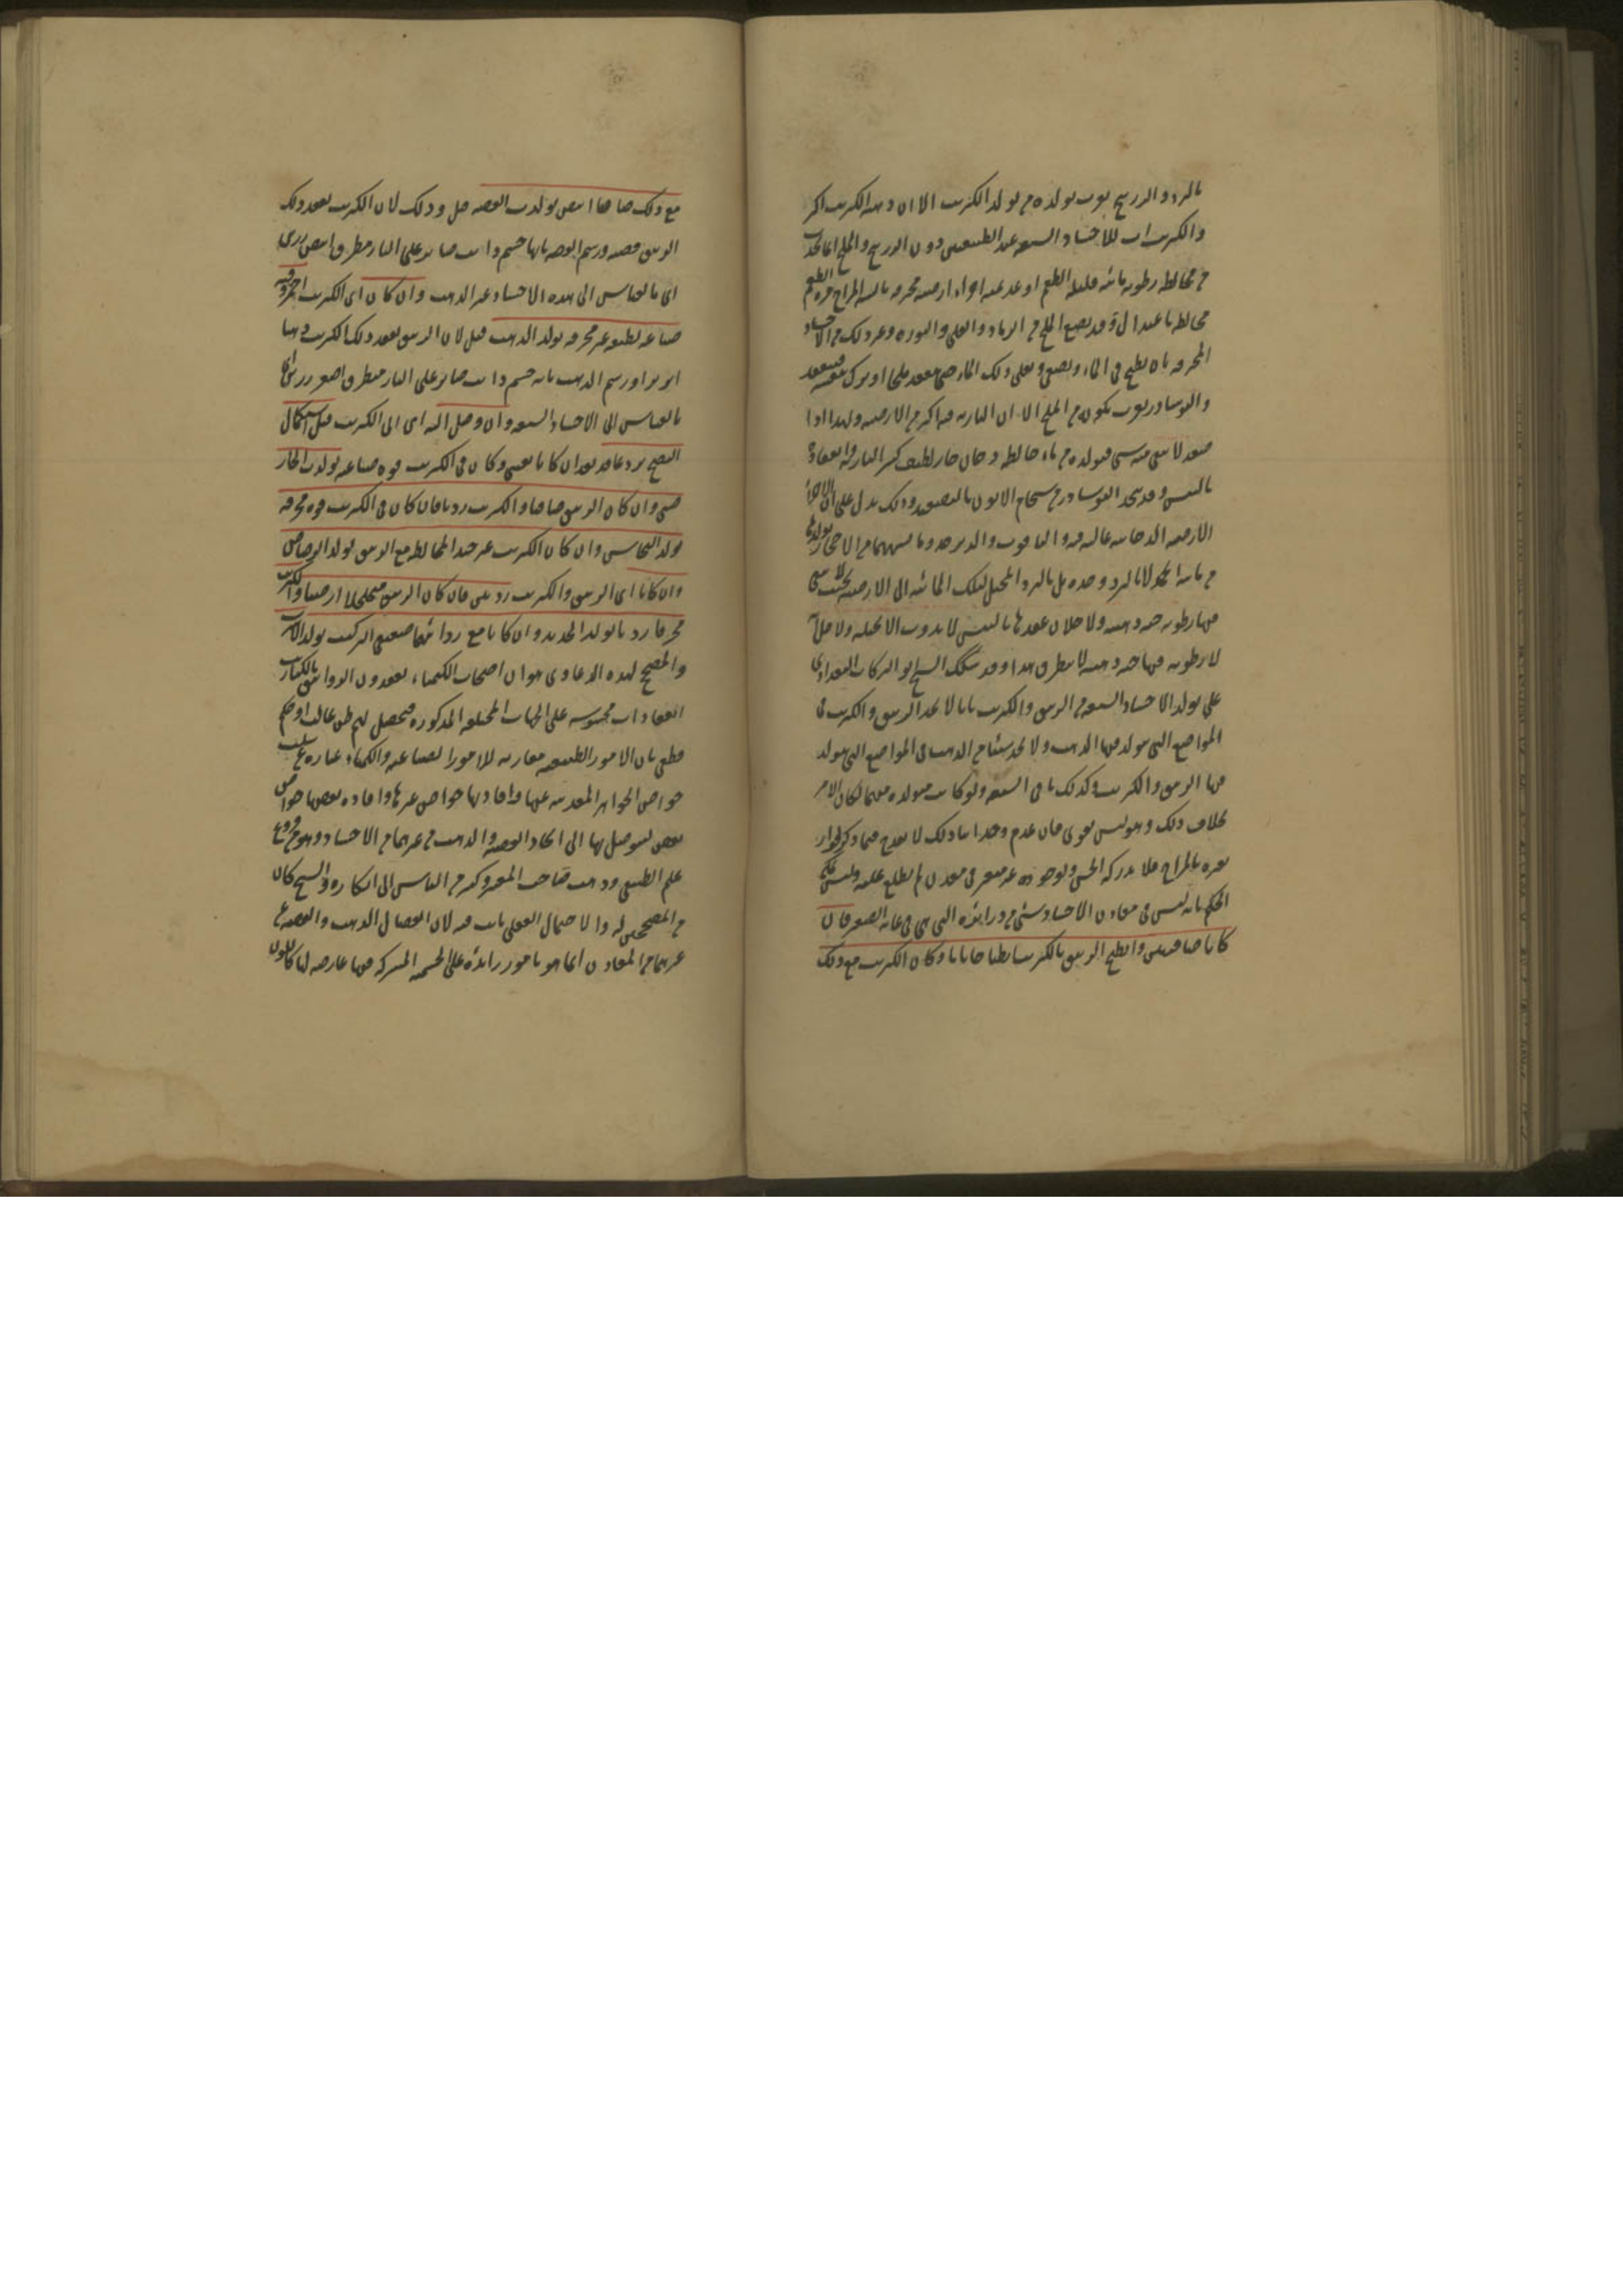 بالبرد والزرنيخ يقرب تولده من تولد الكبريت الا ان دهنية الكبريت اكثر
والكبريت اب للاجساد السبعة عند الطبيعيين دون الزرنيخ والملح انما يحدث
من مخالطة رطوبة مائية قليلة الطعم او عديمته اجزاء ارضية محترقة يابسة المزاج مرة الطعم
مخالطة باعتدال وقد يصنع الملح من الرماد والقلي والنورة وغير ذلك من الاجساد
المحرقة بان يطبخ في الماء ويصفى ويغلى ذلك الماء حتى ينعقد ملحا او يترك بنفسه فينعقد
والنوشادر يقرب تكونه من الملح الا ان النارية فيه اكثر من الارضية ولهذا اذا
صعد لا يبقى منه شيء فتولده من ماء خالطه دخان حار لطيف كثير النارية وانعقاده
باليبس وقد يتخذ النوشادر من سخام الاتون بالتصعيد وذلك يدل على ان الاجزاء
الارضية الدخانية غالبة فيه والياقوت والزبرجد وما يشبههما من الاحجار تولدها
من مائية تجمد لا بالبرد وحده بل بالبرد المحيل لتلك المائية الى الارضية بحيث لا يبقى
فيها رطوبة حية دهنية ولاجل ان عقدها باليبس لا يذوب الا بحيلة ولاجل انه
لا رطوبة فيها حية دهنية لا ينطرق هذا وقد شكك الشيخ ابو البركات البغدادي
على تولد الاجساد السبعة من الزيبق والكبريت بانا لا نجد الزيبق والكبريت في
المواضع التي يتولد فيها الذهب ولا نجد شيئا من الذهب في المواضع التي يتولد
فيها الزيبق والكبريت وكذلك باقي السبعة ولو كانت متولدة منهما لكان الامر
بخلاف ذلك وهو ليس بقوي فان عدم وجداننا ذلك لا يقدح فيما ذكر لجواز
تغيره بالمزاج فلا يدركه الحس ولوجوده غير متغير في معدن لم نطلع عليه وليس يمكن
الحكم بانه ليس في معادن الاجساد شيء من ذراته التي هي في غاية الصغر فان
كانا صافيين وانطبخ الزيبق بالكبريت انطباخا تاما وكان الكبريت مع ذلك
مع ذلك صافيا ابيض تولدت الفضة قيل وذلك لان الكبريت يعقد ذلك
الزيبق فضة ورسم الفضة بانها جسم ذائب صابر على النار منطرق ابيض رزين
اي بالقياس الى هذه الاجساد غير الذهب وان كان اي الكبريت احمر وفيه قوة
صباغة لطيفة غير محرقة تولد الذهب قيل لان الزيبق يعقد ذلك الكبريت ذهبا
ابريزا ورسم الذهب بانه جسم ذائب صابر على النار منطرق اصفر رزين اي
بالقياس الى الاجساد السبعة وان وصل اليه اي الى الكبريت قبل استكمال
النضج برد عاقد بعد ان كانا نقيين وكان في الكبريت قوة صباغة تولد الخار
صيني وان كان الزيبق صافيا والكبريت رديا فان كان في الكبريت قوة محرقة
تولد النحاس وان كان الكبريت غير جيد المخالطة مع الزيبق تولد الرصاص
وان كانا اي الزيبق والكبريت رديين فان كان الزيبق متخلخلا ارضيا والكبريت
محرقا رديا تولد الحديد وان كانا مع رداءتهما ضعيفي التركيب تولد الاسرب
والمصحح لهذه الدعاوى هو ان اصحاب الكيمياء يعقدون الزوابيق بالكباريت
انعقادات محسوسة على الجهات المختلفة المذكورة فيحصل لهم ظن غالب او حكم
قطعي بان الامور الطبيعية مقارنة للامور الصناعية والكيمياء عبارة عن سلب
خواص الجواهر المعدنية عنها وافادتها خواص غيرها وافادة بعضها خواص
بعض ليتوصل بها الى اتخاذ الفضة والذهب من غيرهما من الاجساد وهو من فروع
علم الطبيعي وذهب صاحب المعتبر وكثير من الناس الى انكاره والشيخ كان
من المصححين له والاحتمال العقلي ثابت فيه لان انفصال الذهب والفضة عن
غيرهما من المعادن انما هو بامور زائدة على الجسمية المشتركة فيها عارضة لها